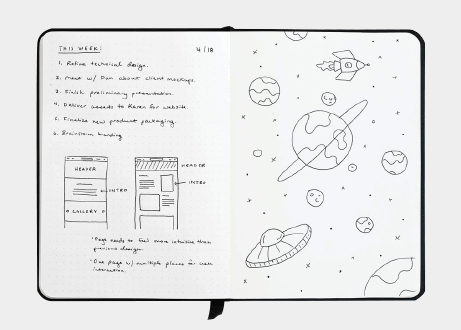 THIS WEEK:
4/18
1. Refine technical design.
2. Meet w/ Dan about client mockups.
3. Finish preliminary presentation.
4. Deliver assets to Karen for website.
5. Finalize new product packaging.
6. Brainstorm branding
HEADER
INTRO
GALLERY
HEADER
INTRO
*Page needs to feel more intuitive than
previous design.
*One page w/ multiple places for user
interaction.